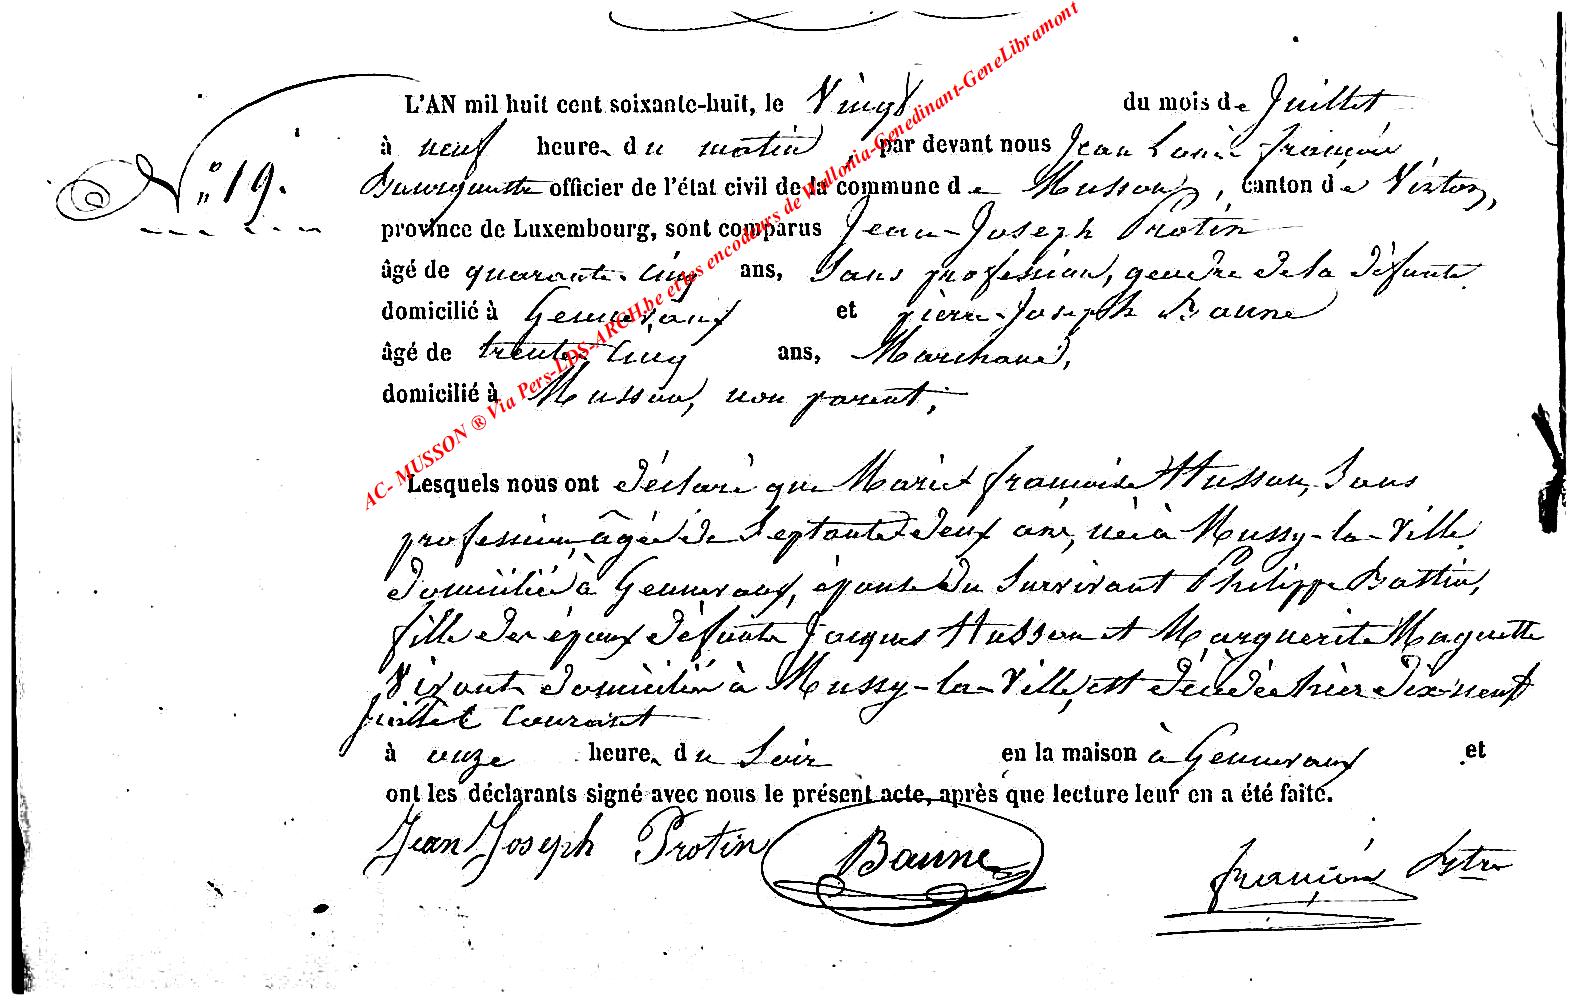 L'AN mil huit cent soixante-huit, le Vingt du mois de Juillet
N° 19.
à neuf heure du matin, par devant nous Jean Louis françois
officier de l'état civil de la commune de Musson, canton de Virton,
province de Luxembourg, sont comparus Jean-Joseph Protin
âgé de quarante-cinq ans, Sans profession, gendre de la défunte
domicilié à Gennevaux et pierre-Joseph Baune
âgé de trente cinq ans, Marchand,
domicilié à Musson, non parent,
AC- MUSSON ® Via Pers-LDS-ARCH.be et les encodeurs de Wallonia-Genedinant-GeneLibramont
Lesquels nous ont déclaré que Marie françoise Husson, Sans
profession, âgée de Septante deux ans, née à Mussy-la-Ville
domiciliée à Gennevaux, épouse du Survivant Philippe Battin,
fille des époux défunts Jacques Husson et Marguerite Maguette
Vivant domiciliés à Mussy-la-Ville, est décédée hier dix-neuf
Juillet Courant
à onze heure du Soir en la maison à Gennevaux et
ont les déclarants signé avec nous le présent acte, après que lecture leur en a été faite.
Jean Joseph Protin Baune françois